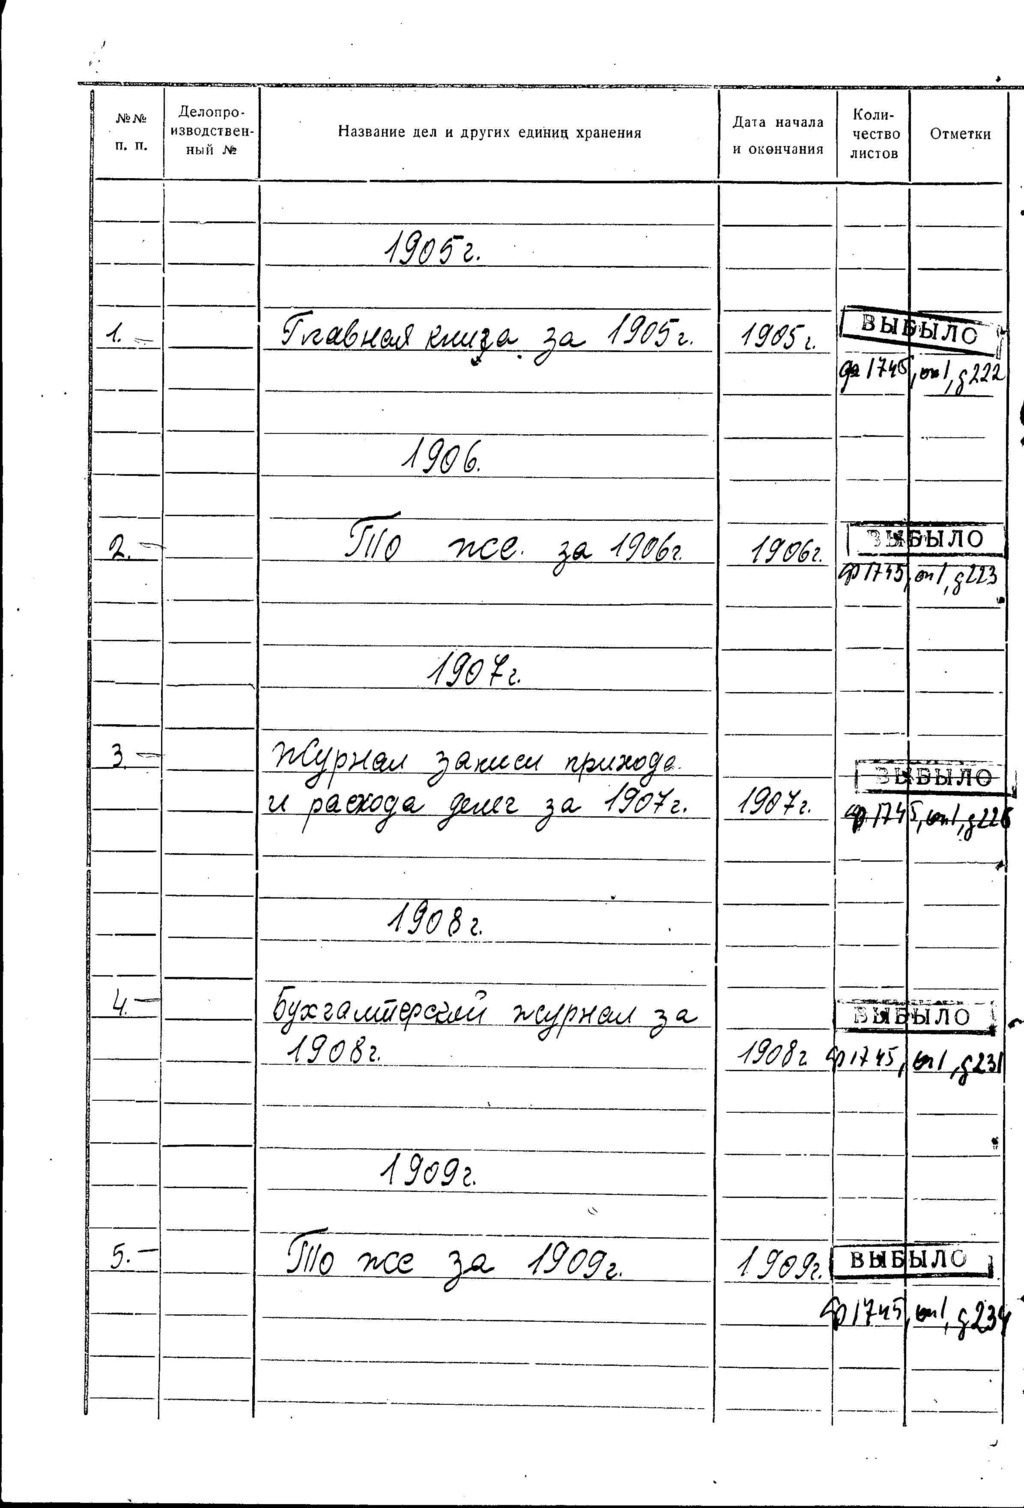 №№ п. п.
Делопро-
изводствен-
ный №
Название дел и других единиц хранения
Дата начала
и окончания
Коли-
чество
листов
Отметки
1905г.
1. Главная книга за 1905г. 1905г. ВЫБЫЛО
1745, оп1, д222
1906.
2. То же за 1906г. 1906г. ВЫБЫЛО
ф1745, оп1, д223
1907г.
3. Журнал записи прихода
ВЫБЫЛО
и расхода денег за 1907г. 1907г. ф1745, оп1,
1908г.
4. Бухгалтерский журнал за ВЫБЫЛО
1908г. 1908г ф1745, оп1, д231
1909г.
5. То же за 1909г. 1909г. ВЫБЫЛО
ф1745, оп1, д234